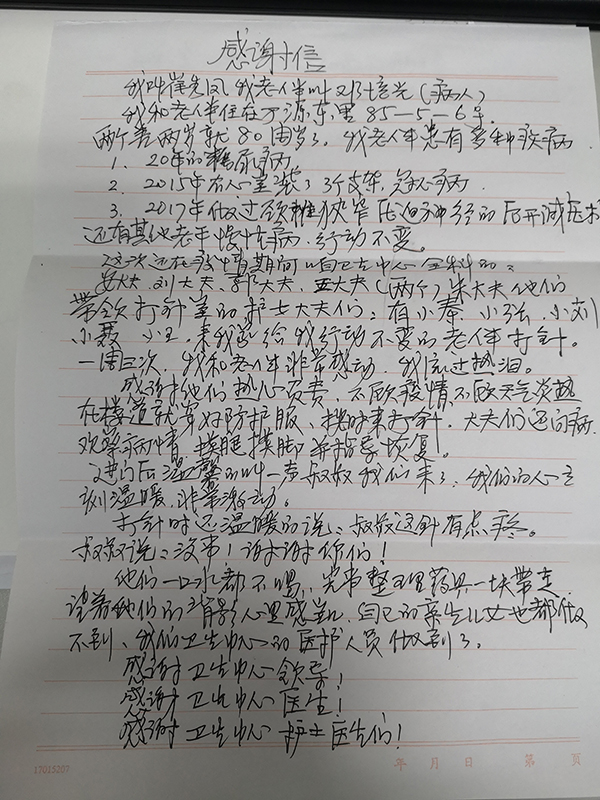 感谢信
我叫崔先凤 我老伴叫邓培光(病人)
我和老伴住在万源东里85-5-6号.
两个差两岁就80周岁了. 我老伴患有多种疾病
1. 20年的糖尿病.
2. 2015年 装了3个支架, 冠心病
3. 2017年做过颈椎狭窄压迫神经的后开减压术
还有其他老年慢性病. 行动不变。
这次还在疫情期间 咱卫生中心全科的:
安大夫 刘大夫、郭大夫、 大夫(两个) 朱大夫他们
带领打针 的护士大夫们: 有小秦 小张 小刘
小聂 小王. 来我家给我行动不变的老伴打针。
一周三次. 我和老伴非常感动. 我流过热泪。
感谢他们热心负责, 不顾疫情, 不顾天气炎热
在楼道就穿好防护服、按时来打针. 大夫们还问病
观察病情. 摸腿摸脚并指导恢复。
进门后温馨的叫一声叔叔我们来了. 我们的心立
刻温暖. 非常激动。
打针时还温暖的说: 叔叔这针有点疼。
叔叔说: 没事! 谢谢你们!
他们一口水都不喝, 完事整理药具一块带走
望着他们的背影心里感 , 自己的亲生儿女也都做
不到、我们卫生中心的医护人员做到了。
感谢卫生中心领导!
感谢卫生中心医生!
感谢卫生中心护士医生们!
17015207 年 月 日 第 页